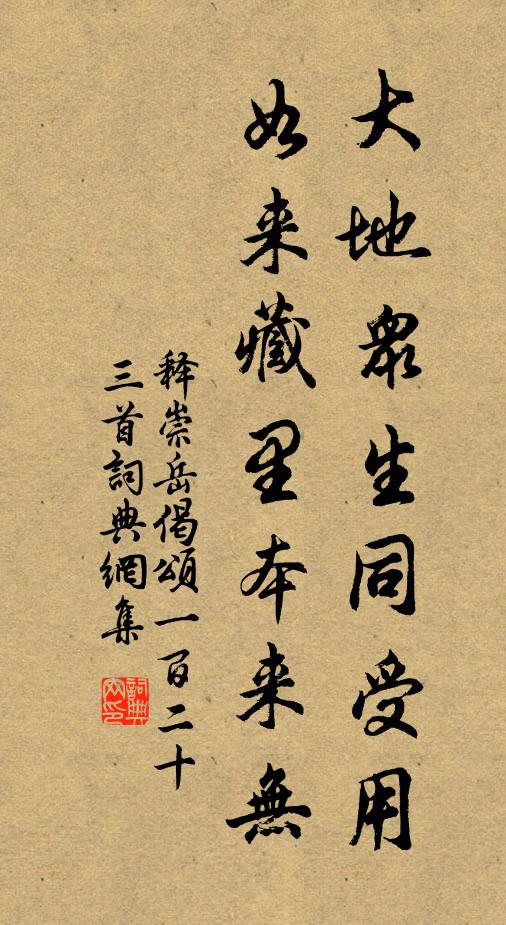 大地眾生同受用
如来藏里本来無
释崇岳偈頌一百二十
三首詞典網集
詞典網印